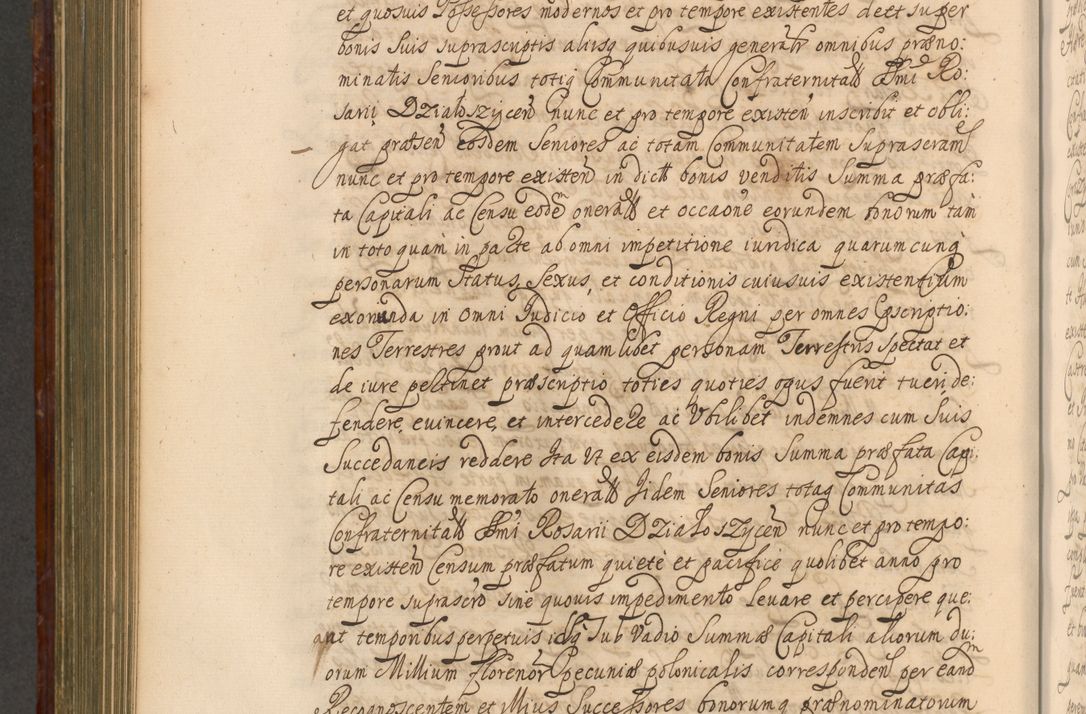 et quosuis Possessores modernos et pro tempore existentes dett super
bonis suis suprascriptis alijsq quibusuis generatr omnibus præno:
minatis Senioribus totiq Communitati Confraternitatt Smi Ro:
sarii DZiałoszyceń nunc et pro tempore existeń inscribit et obli:
gat præseń eosdem Seniores ac totam Communitatem suprascram
nunc et pro tempore existeń in dictt bonis venditis Summa præfa:
ta Capitali ac Censu eodem oneratt et occaōne eorundem bonorum tam
in toto quam in parte ab omni impetitione iuridica quarumcunq
personarum Status, Sexus, et conditionis cuiusuis existentium
exoneranda in omni Judicio et Officio Regni per omnes
nes Terrestres prout ad quamlibet personam Terrestris spectat et
de iure pertinet præscriptio toties quoties opus fuerit tueri de:
fendere, euincere, et intercedere ac Vbilibet indemnes cum suis
Succedaneis reddere Ita Vt ex eisdem bonis Summa præfata Capi:
tali ac Censu memorato oneratt Jidem Seniores totaq Communitas
Confraternitatt Smi Rosarii DZiałoszyceń nunc et pro tempo:
re existeń Censum præfatum quiete et pacifice quolibet anno pro
tempore suprascro sine quouis impedimento leuare et percipere que:
ant temporibus perpetuis idq Sub Vadio Summæ Capitali aliorum du:
orum Millium florenor Pecuniæ polonicalis corresponden per eand
Recognoscentem et illius Successores bonorumq prænominatorum